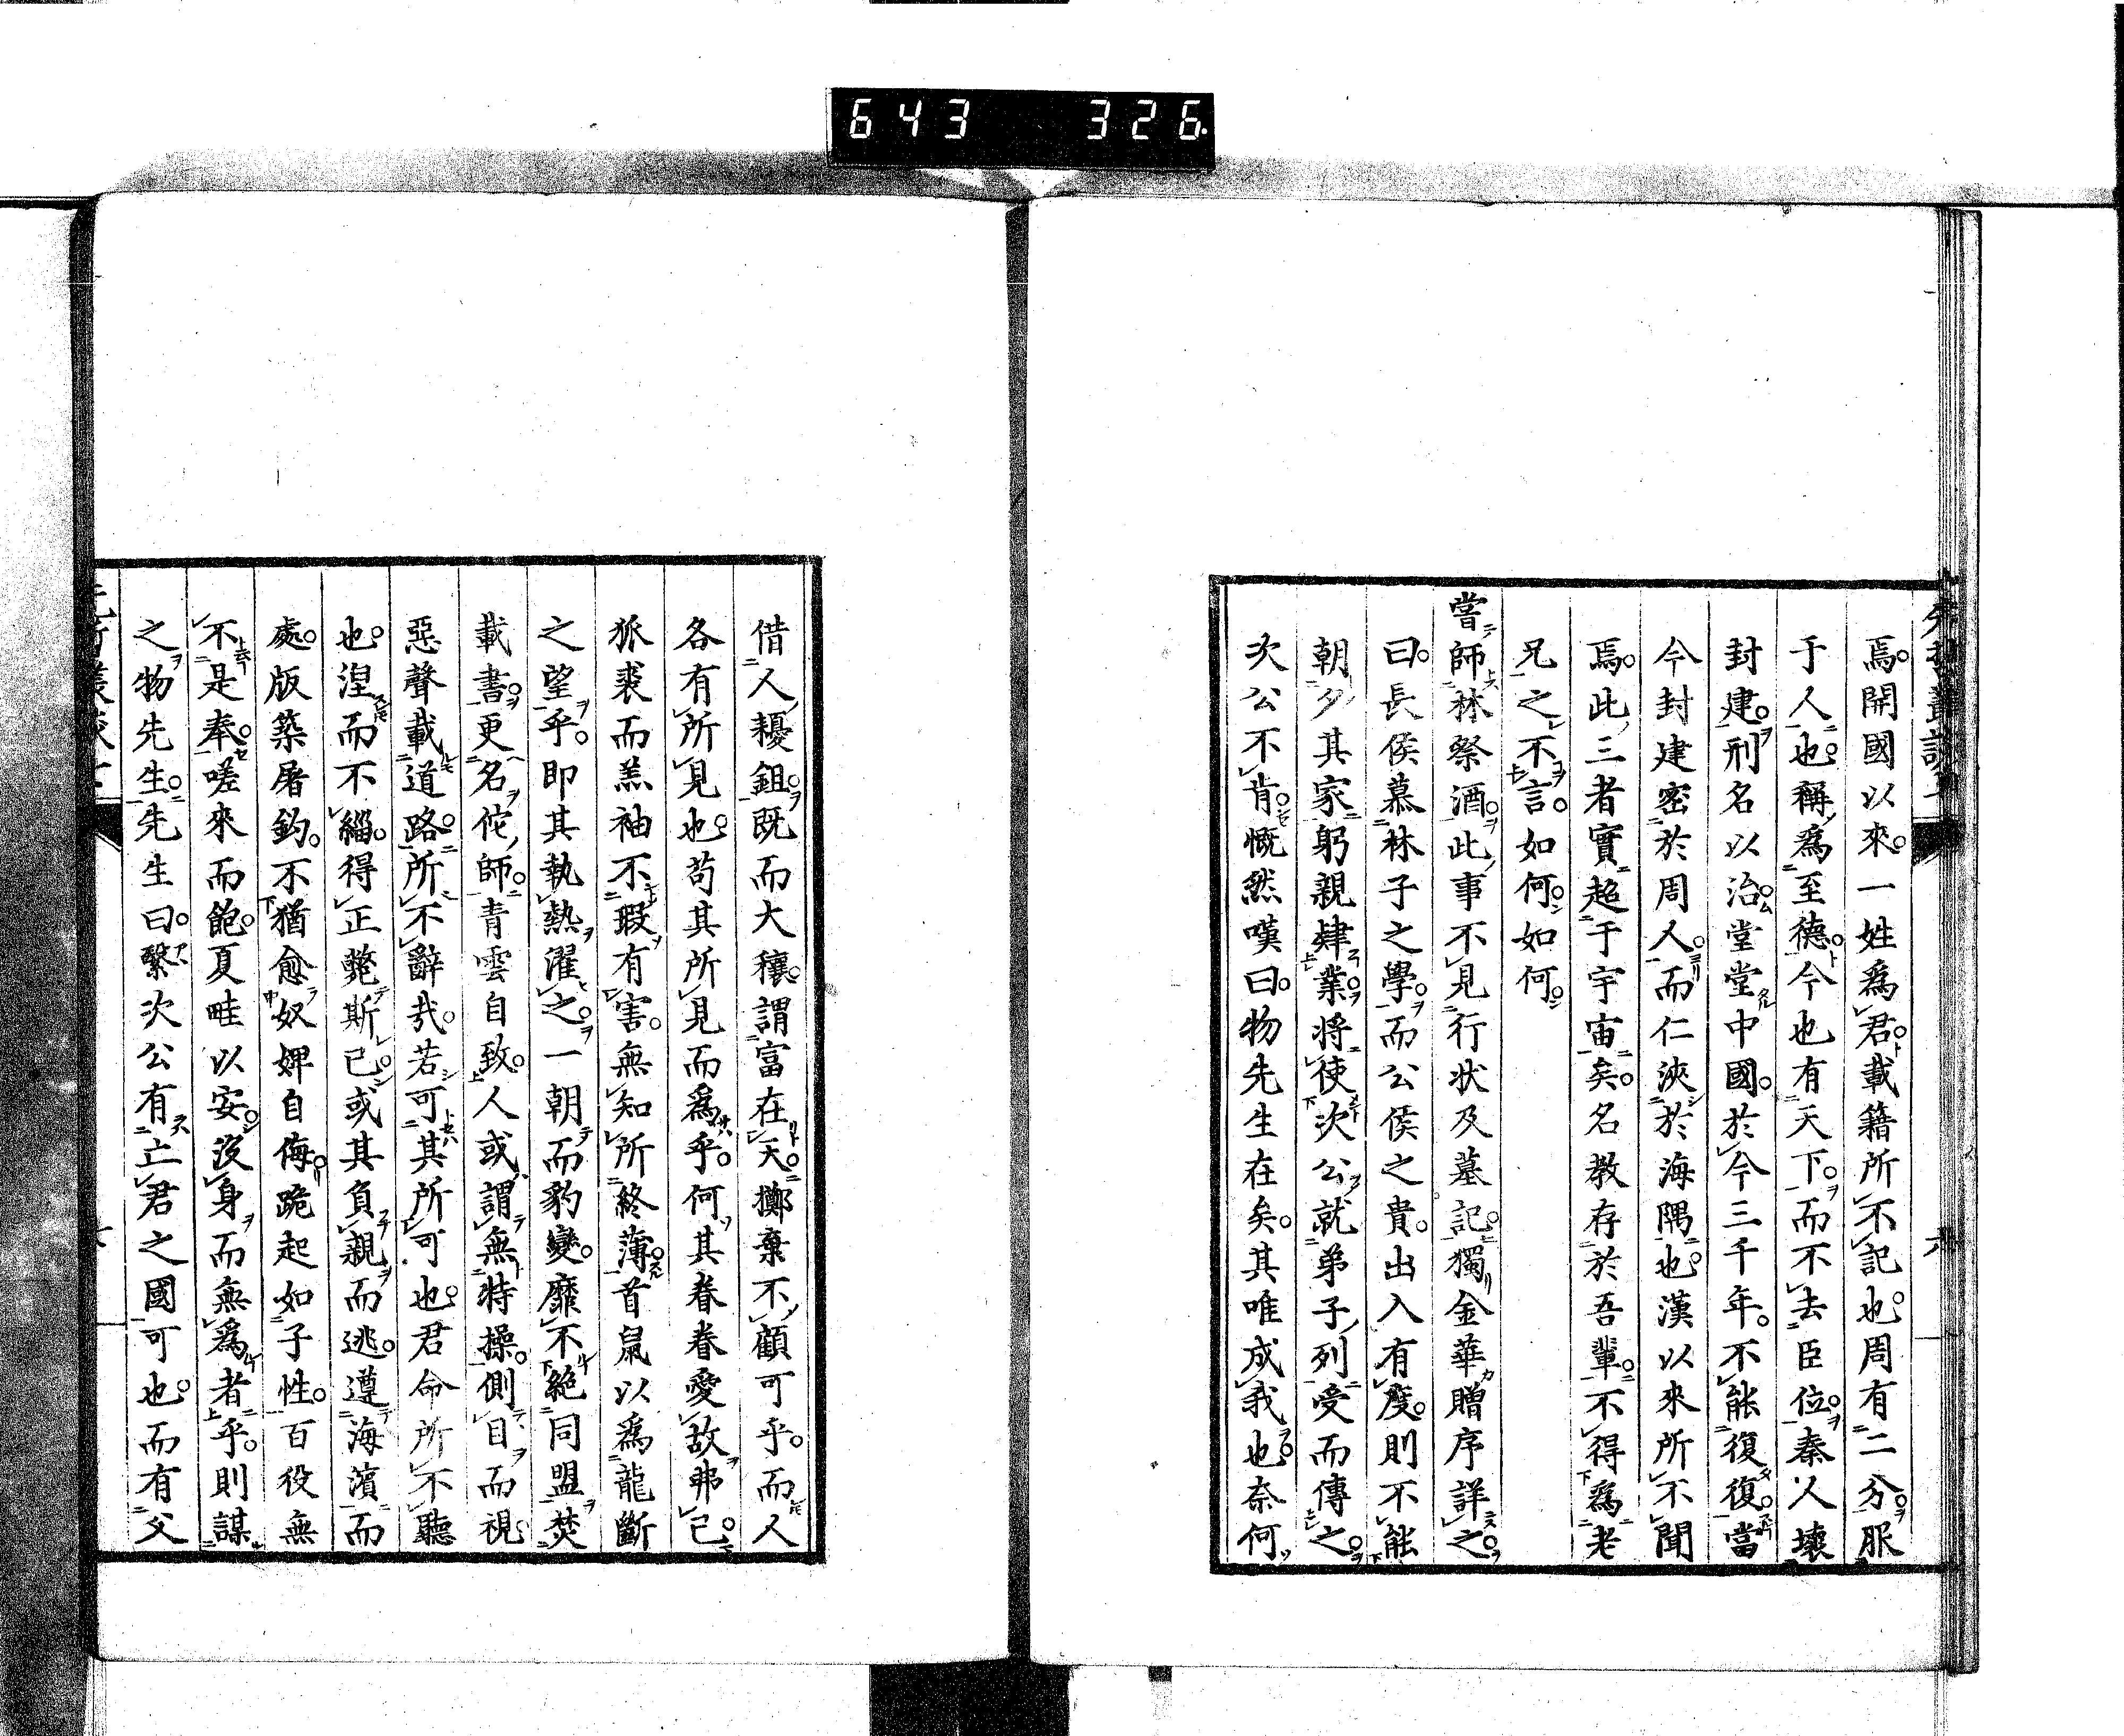 643 326
焉。開國以來。一姓爲君。載籍所不記也。周有二分。服
于人也。稱爲至德。今也有天下。而不去臣位。秦人壞
封建。刑名以治。堂堂中國。於今三千年。不能復復。當
今封建密於周人。而仁浹於海隅也。漢以來所不聞
焉。此三者實超于宇宙矣。名教存於吾輩。不得爲老
兄之不言。如何如何。
嘗師林祭酒。此事不見行狀及墓記。獨金華贈序詳之。
曰。長侯慕林子之學。而公侯之貴。出入有度。則不能
朝夕其家。躬親肄業。將使次公就弟子列受而傳之。
次公不肯。慨然嘆曰。物先生在矣。其唯成我也。奈何
借人耰鉏。既而大穰。謂富在天。擲棄不顧可乎。而人
各有所見也。苟其所見而爲乎。何其眷眷愛故弗已。
狐裘而羔袖。不瑕有害。無知所終薄。首鼠以爲龍斷
之望乎。即其執熱濯之。一朝而豹變。靡不絕同盟焚
載書。更名佗師。青雲自致。人或謂無特操。側目而視。
惡聲載道路。所不辭哉。若可其所可也。君命所不聽
也。涅而不緇。得正斃斯已。或其負親而逃。遵海濱而
處。版築屠鈞。不猶愈奴婢自侮。跪起如子性。百役無
不是奉。嗟來而飽。夏畦以安。沒身而無爲者乎。則謀
之物先生。先生曰。繄次公有亡君之國可也。而有父